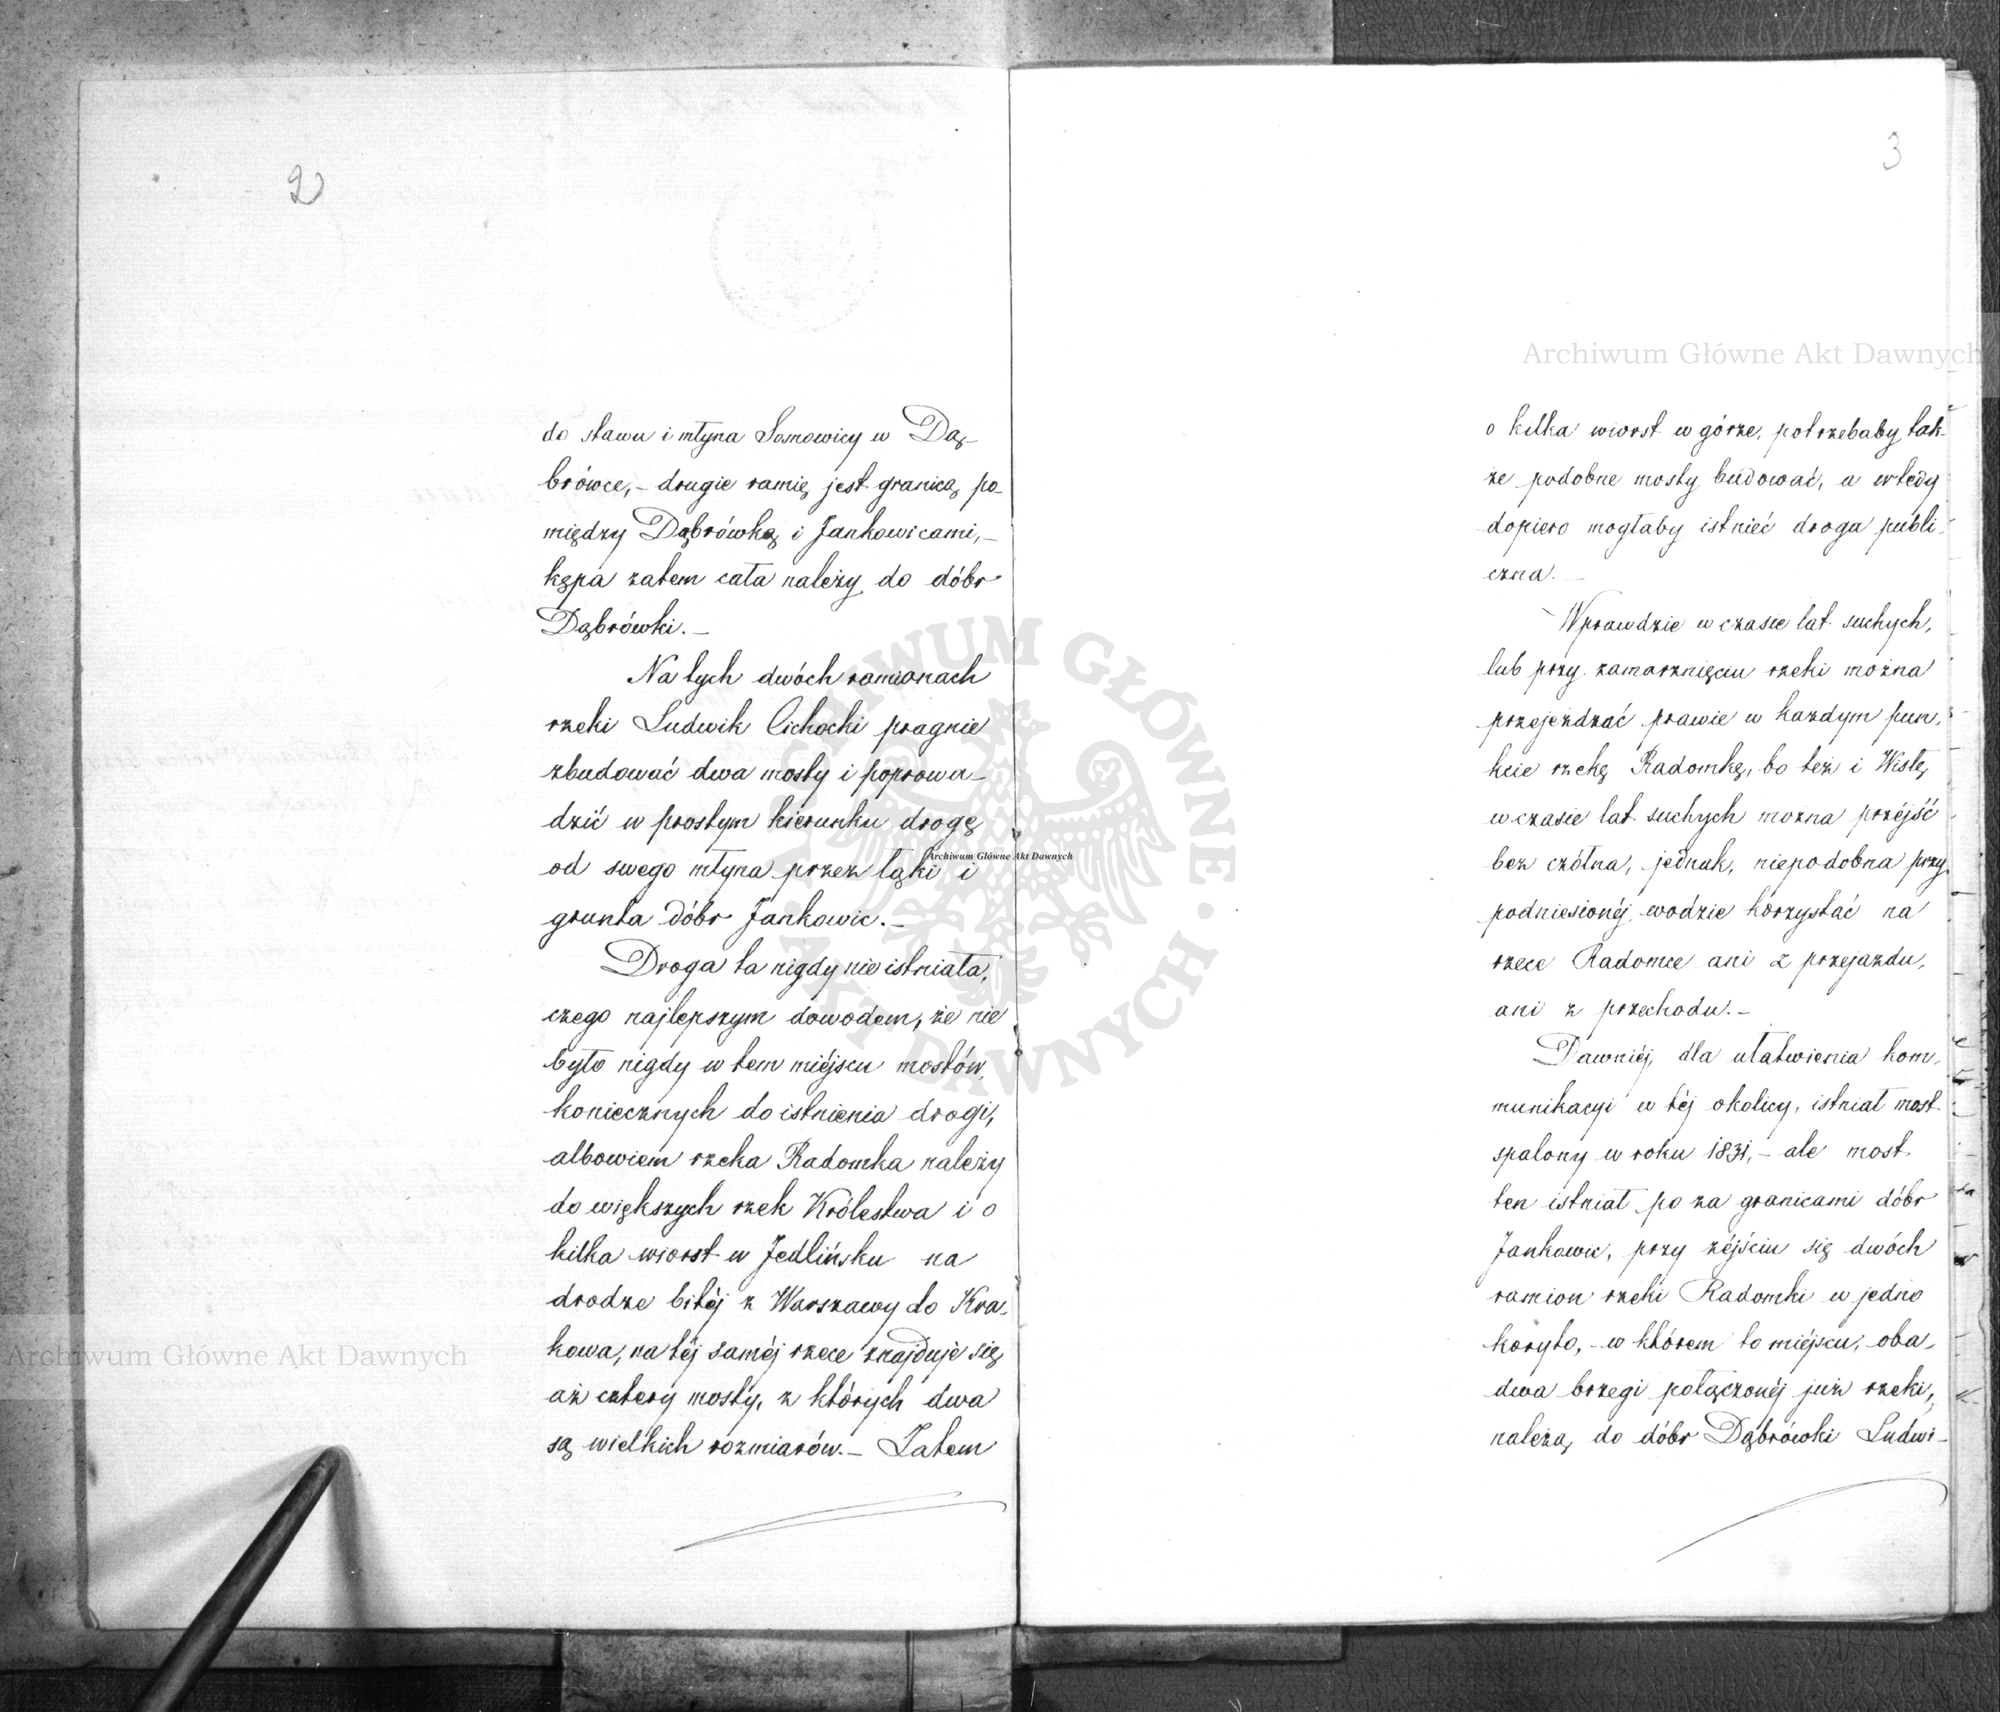 2
do stawu i młyna Sosnowicy w Dą-
brówce, – drugie ramię jest granicą po-
między Dąbrówką i Jankowicami, –
kępa zatem cała należy do dóbr
Dąbrówki. –
Na tych dwóch ramionach
rzeki Ludwik Cichocki pragnie
zbudować dwa mosty i poprowa-
dzić w prostym kierunku drogę
od swego młyna przez łąki i
grunta dóbr Jankowic. –
Droga ta nigdy nie istniała,
czego najlepszym dowodem, że nie
było nigdy w tem miéjscu mostów,
koniecznych do istnienia drogi,
albowiem rzeka Radomka należy
do większych rzek Królestwa i o
kilka wiorst w Jedlińsku na
drodze bitéj z Warszawy do Kra-
kowa, na téj saméj rzece znajduje się
aż cztery mosty, z których dwa
są wielkich rozmiarów. – Zatem
3
o kilka wiorst w górze, potrzebaby tak-
że podobne mosty budować, a wtedy
dopiero mogłaby istnieć droga publi-
czna. –
Wprawdzie w czasie lat suchych,
lub przy zamarznięciu rzeki można
przejeżdzać prawie w każdym pun-
kcie rzekę Radomkę, bo też i Wisłę
w czasie lat suchych można przéjść
bez czółna, jednak, niepodobna przy
podniesionéj wodzie korzystać na
rzece Radomce ani z przejazdu,
ani z przechodu. –
Dawniéj, dla ułatwienia kom-
munikacyi w téj okolicy, istniał most
spalony w roku 1831, – ale most
ten istniał po za granicami dóbr
Jankowic, przy zéjściu się dwóch
ramion rzeki Radomki w jedno
koryto, – w którem to miéjscu, oba-
dwa brzegi połączonéj już rzeki,
należą do dóbr Dąbrówki Ludwi-
Archiwum Główne Akt Dawnych
Archiwum Główne Akt Dawnych
Archiwum Główne Akt Dawnych
ARCHIWUM GŁÓWNE · AKT DAWNYCH ·